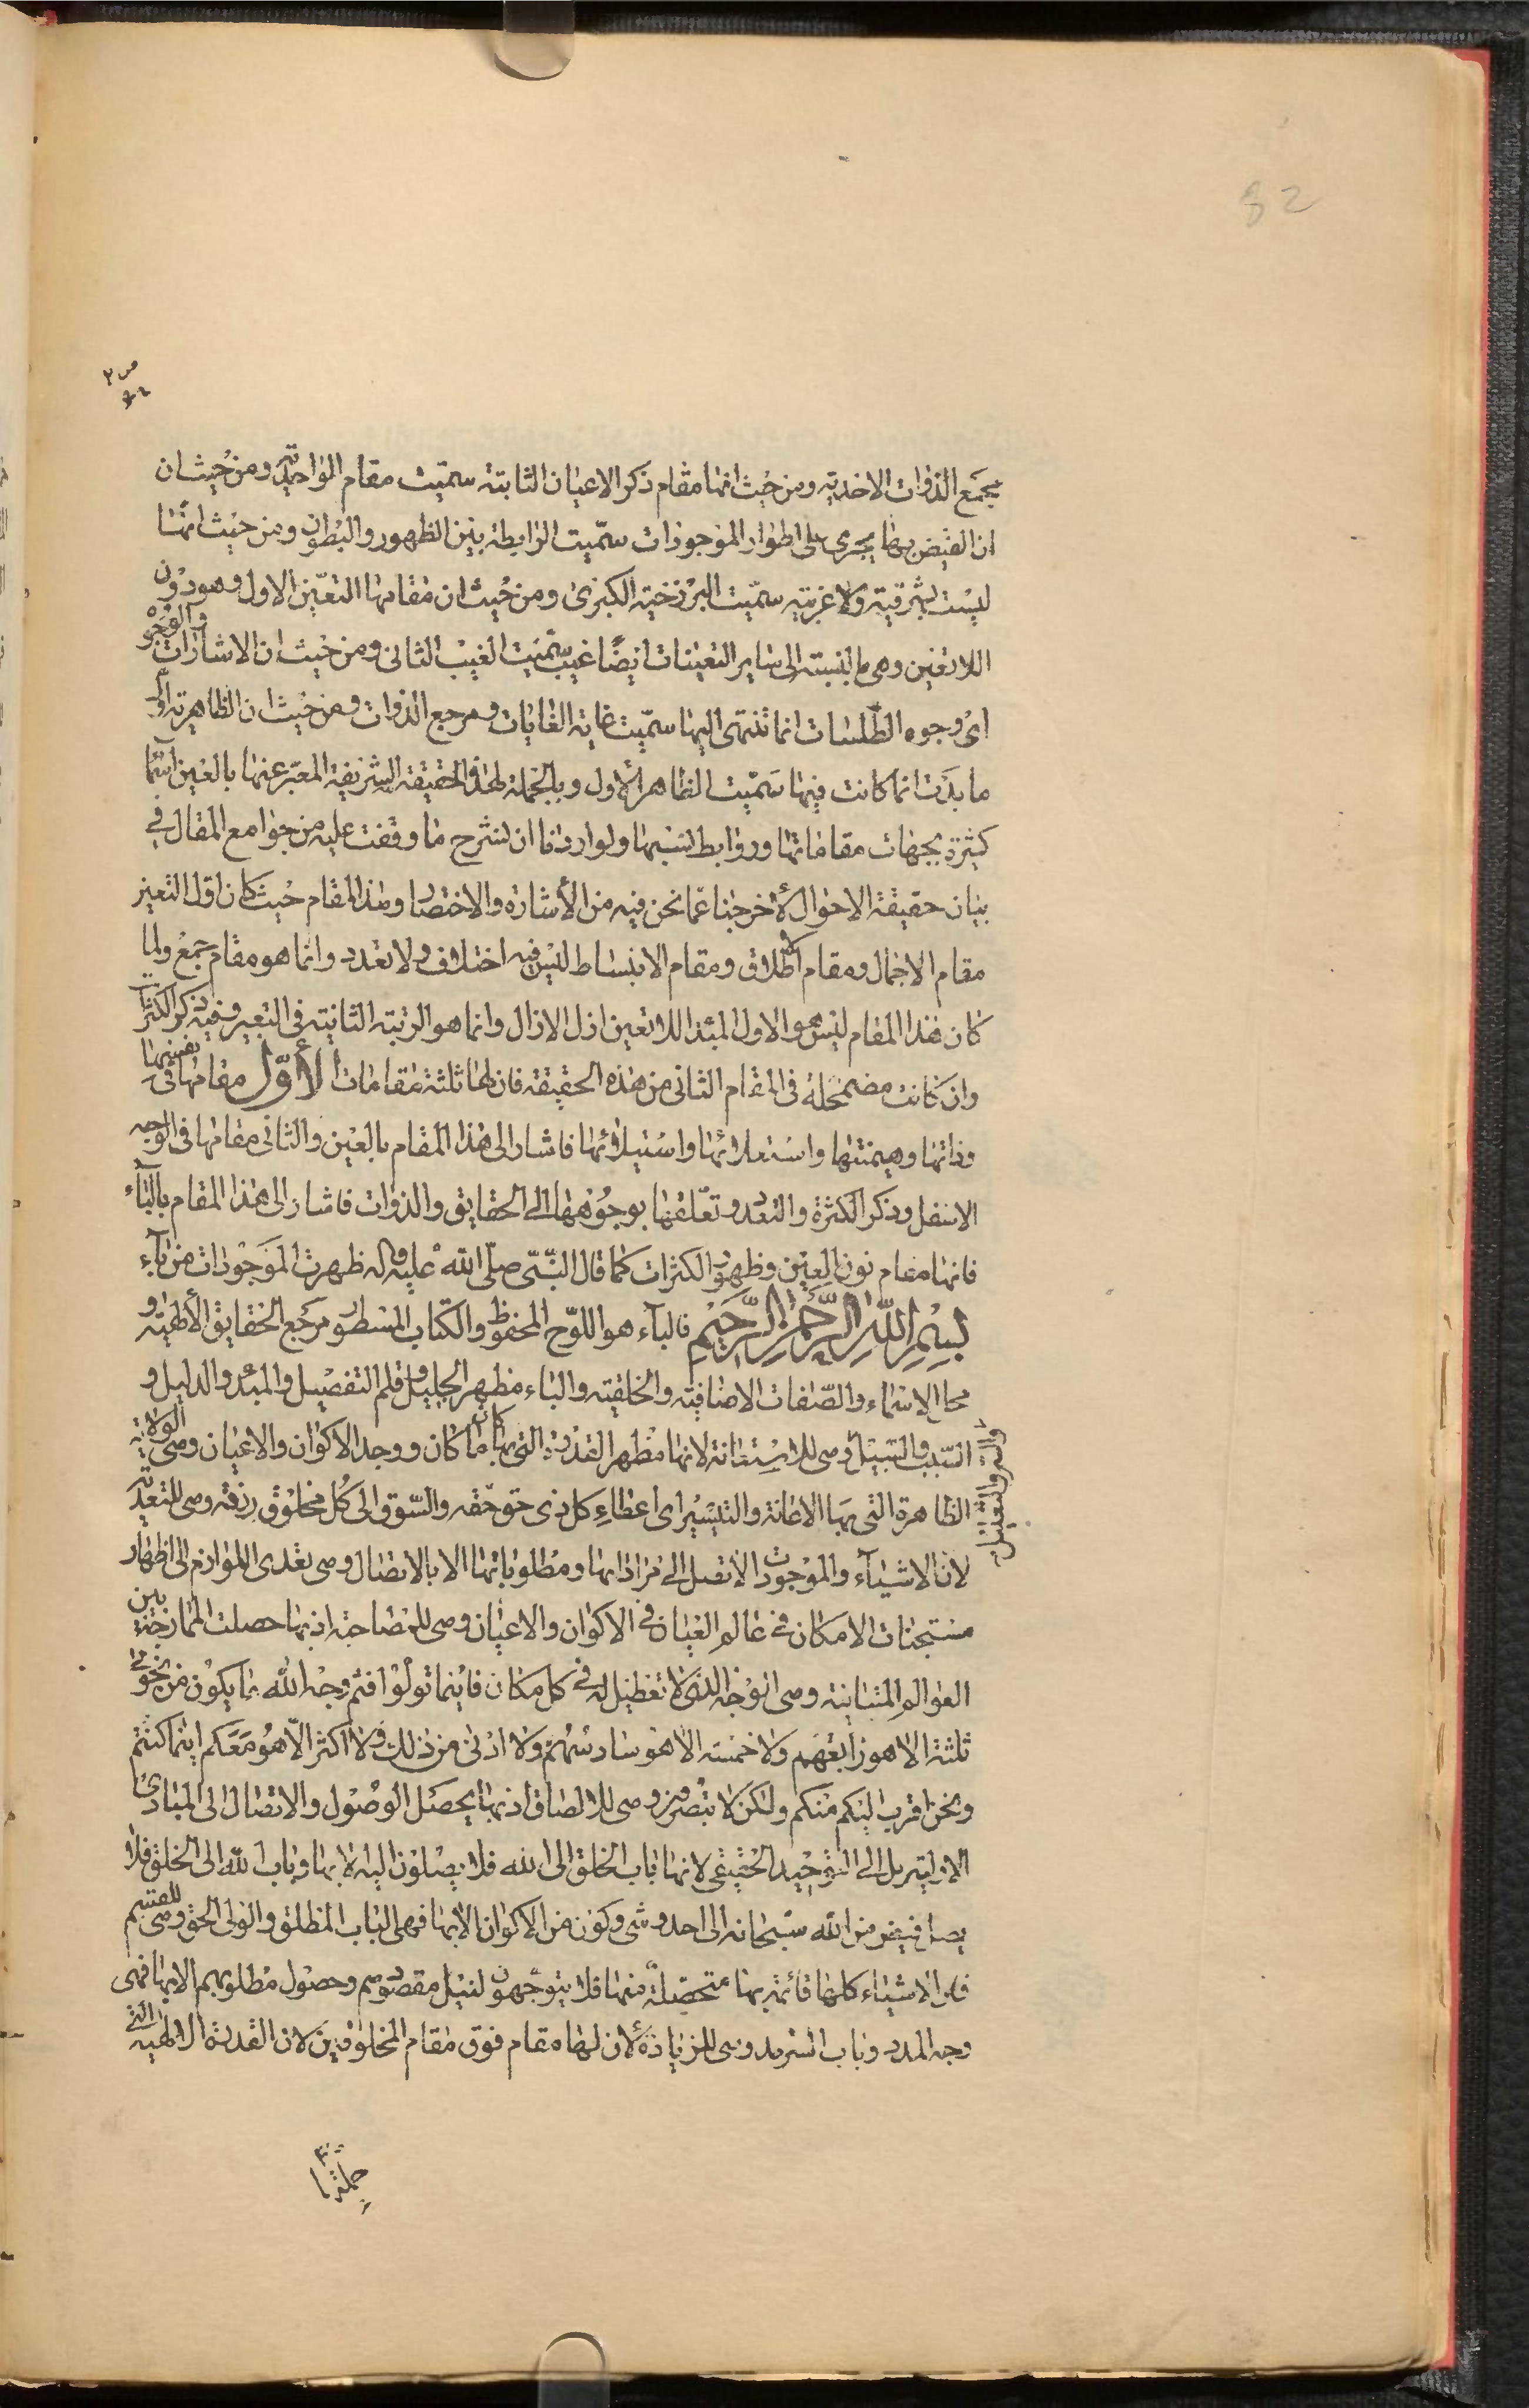 82
مجمع الذوات الاحدية ومن حيث انها مقام ذكر الاعيان الثابتة سميت مقام الواحدية ومن حيث ان
ان الفيض بها يجرى على اطوار الموجودات سميت الرابطة بين الظهور والبطون ومن حيث انها
ليست بشرقية ولا غربية سميت البرزخية الكبرى ومن حيث ان مقامها التعين الاول وهو دون
اللاتعين وهى بالنسبة الى ساير التعينات ايضا غيب سميت الغيب الثانى ومن حيث ان الاشارات والوجوه
اى وجوه الطلسات انما تنتهى اليها سميت غاية الغايات ومرجع الذوات ومن حيث ان الظاهرية اول
ما بدت انما كانت فيها سميت الظاهر الأول وبالجملة لهذه الحقيقة الشريفة المعبر عنها بالعين اسما
كثيرة بجهات مقاماتها وروابط نسبها ولو اردنا ان نشرح ما وقفت عليه من جوامع المقال في
بيان حقيقة الاحوال لأخرجنا عما نحن فيه من الأشارة والاختصار وهذا المقام حيث كان اول التعين
مقام الاجمال ومقام الاطلاق ومقام الانبساط ليس فيه اختلاف ولا تعدد وانما هو مقام جمع ولما
كان هذا المقام ليس هو الاول المبدء اللاتعين ازل الازال وانما هو الرتبة الثانية فى التعبير وفيه ذكر الكثرات
وان كانت مضمحلة فى المقام الثانى من هذه الحقيقة فان لها ثلثة مقامات الأول مقامها فى نفسها
وذاتها وهيمنتها واستعلائها واستيلائها فاشار الى هذا المقام بالعين والثانى مقامها فى الوجه
الاسفل وذكر الكثرة والتعدد وتعلقها بوجوهها الى الحقايق والذوات فاشار الى هذا المقام بالبآء
فانها مقام نون العين وظهور الكثرات كما قال النبى صلى الله عليه واله ظهرت الموجودات من بآء
بسم الله الرحمن الرحيم فالبآء هو اللوح المحفوظ والكتاب المسطور مرجع الحقايق الألهية و
محال الاسماء والصفات الاضافية والخلقية والباء مظهر الجليل وقلم التفصيل والمبدء والدليل و
السبب والسبيل وهى للاستعانة لانها مظهر القدرة التى بها كان ما كان ووجد الاكوان والاعيان وهى الولاية
الظاهرة التى بها الاعانة والتيسير اى اعطاء كل ذى حق حقه والسوق الى كل مخلوق رزقه وهى للتعدية
لان الاشيآء والموجودات لا تصل الى مراداتها ومطلوباتها الا بالاتصال وهى تعدى اللوازم الى اظهار
مستجنات الامكان فى عالم العيان فى الاكوان والاعيان وهى للمصاحبة اذ بها حصلت الممازجة بين
العوالم المتباينة وهى الوجه الذى لا تعطيل له فى كل مكان فاينما تولوا فثم وجه الله ما يكون من نجوى
ثلثة الا هو رابعهم ولا خمسة الا هو سادسهم ولا ادنى من ذلك ولا اكثر الا هو معكم اينما كنتم
ونحن اقرب اليكم منكم ولكن لا تبصرون وهى للالصاق اذ بها يحصل الوصول والاتصال الى المبادى
الاولية بل الى التوحيد الحقيقى لانها باب الخلق الى الله فلا يصلون اليه الا بها وباب الله الى الخلق فلا
يصل فيض من الله سبحانه الى احد وشى وكون من الاكوان الا بها فهى الباب المطلق والولى الحق وهى للقسم
فان الاشياء كلها قائمة بها متحصلة منها فلا يتوجهون لنيل مقصودهم وحصول مطلوبهم الا بها فهى
وجه المدد وباب السرمد وهى للزيادة لأن لها مقام فوق مقام المخلوقين لان القدرة الالهية التى